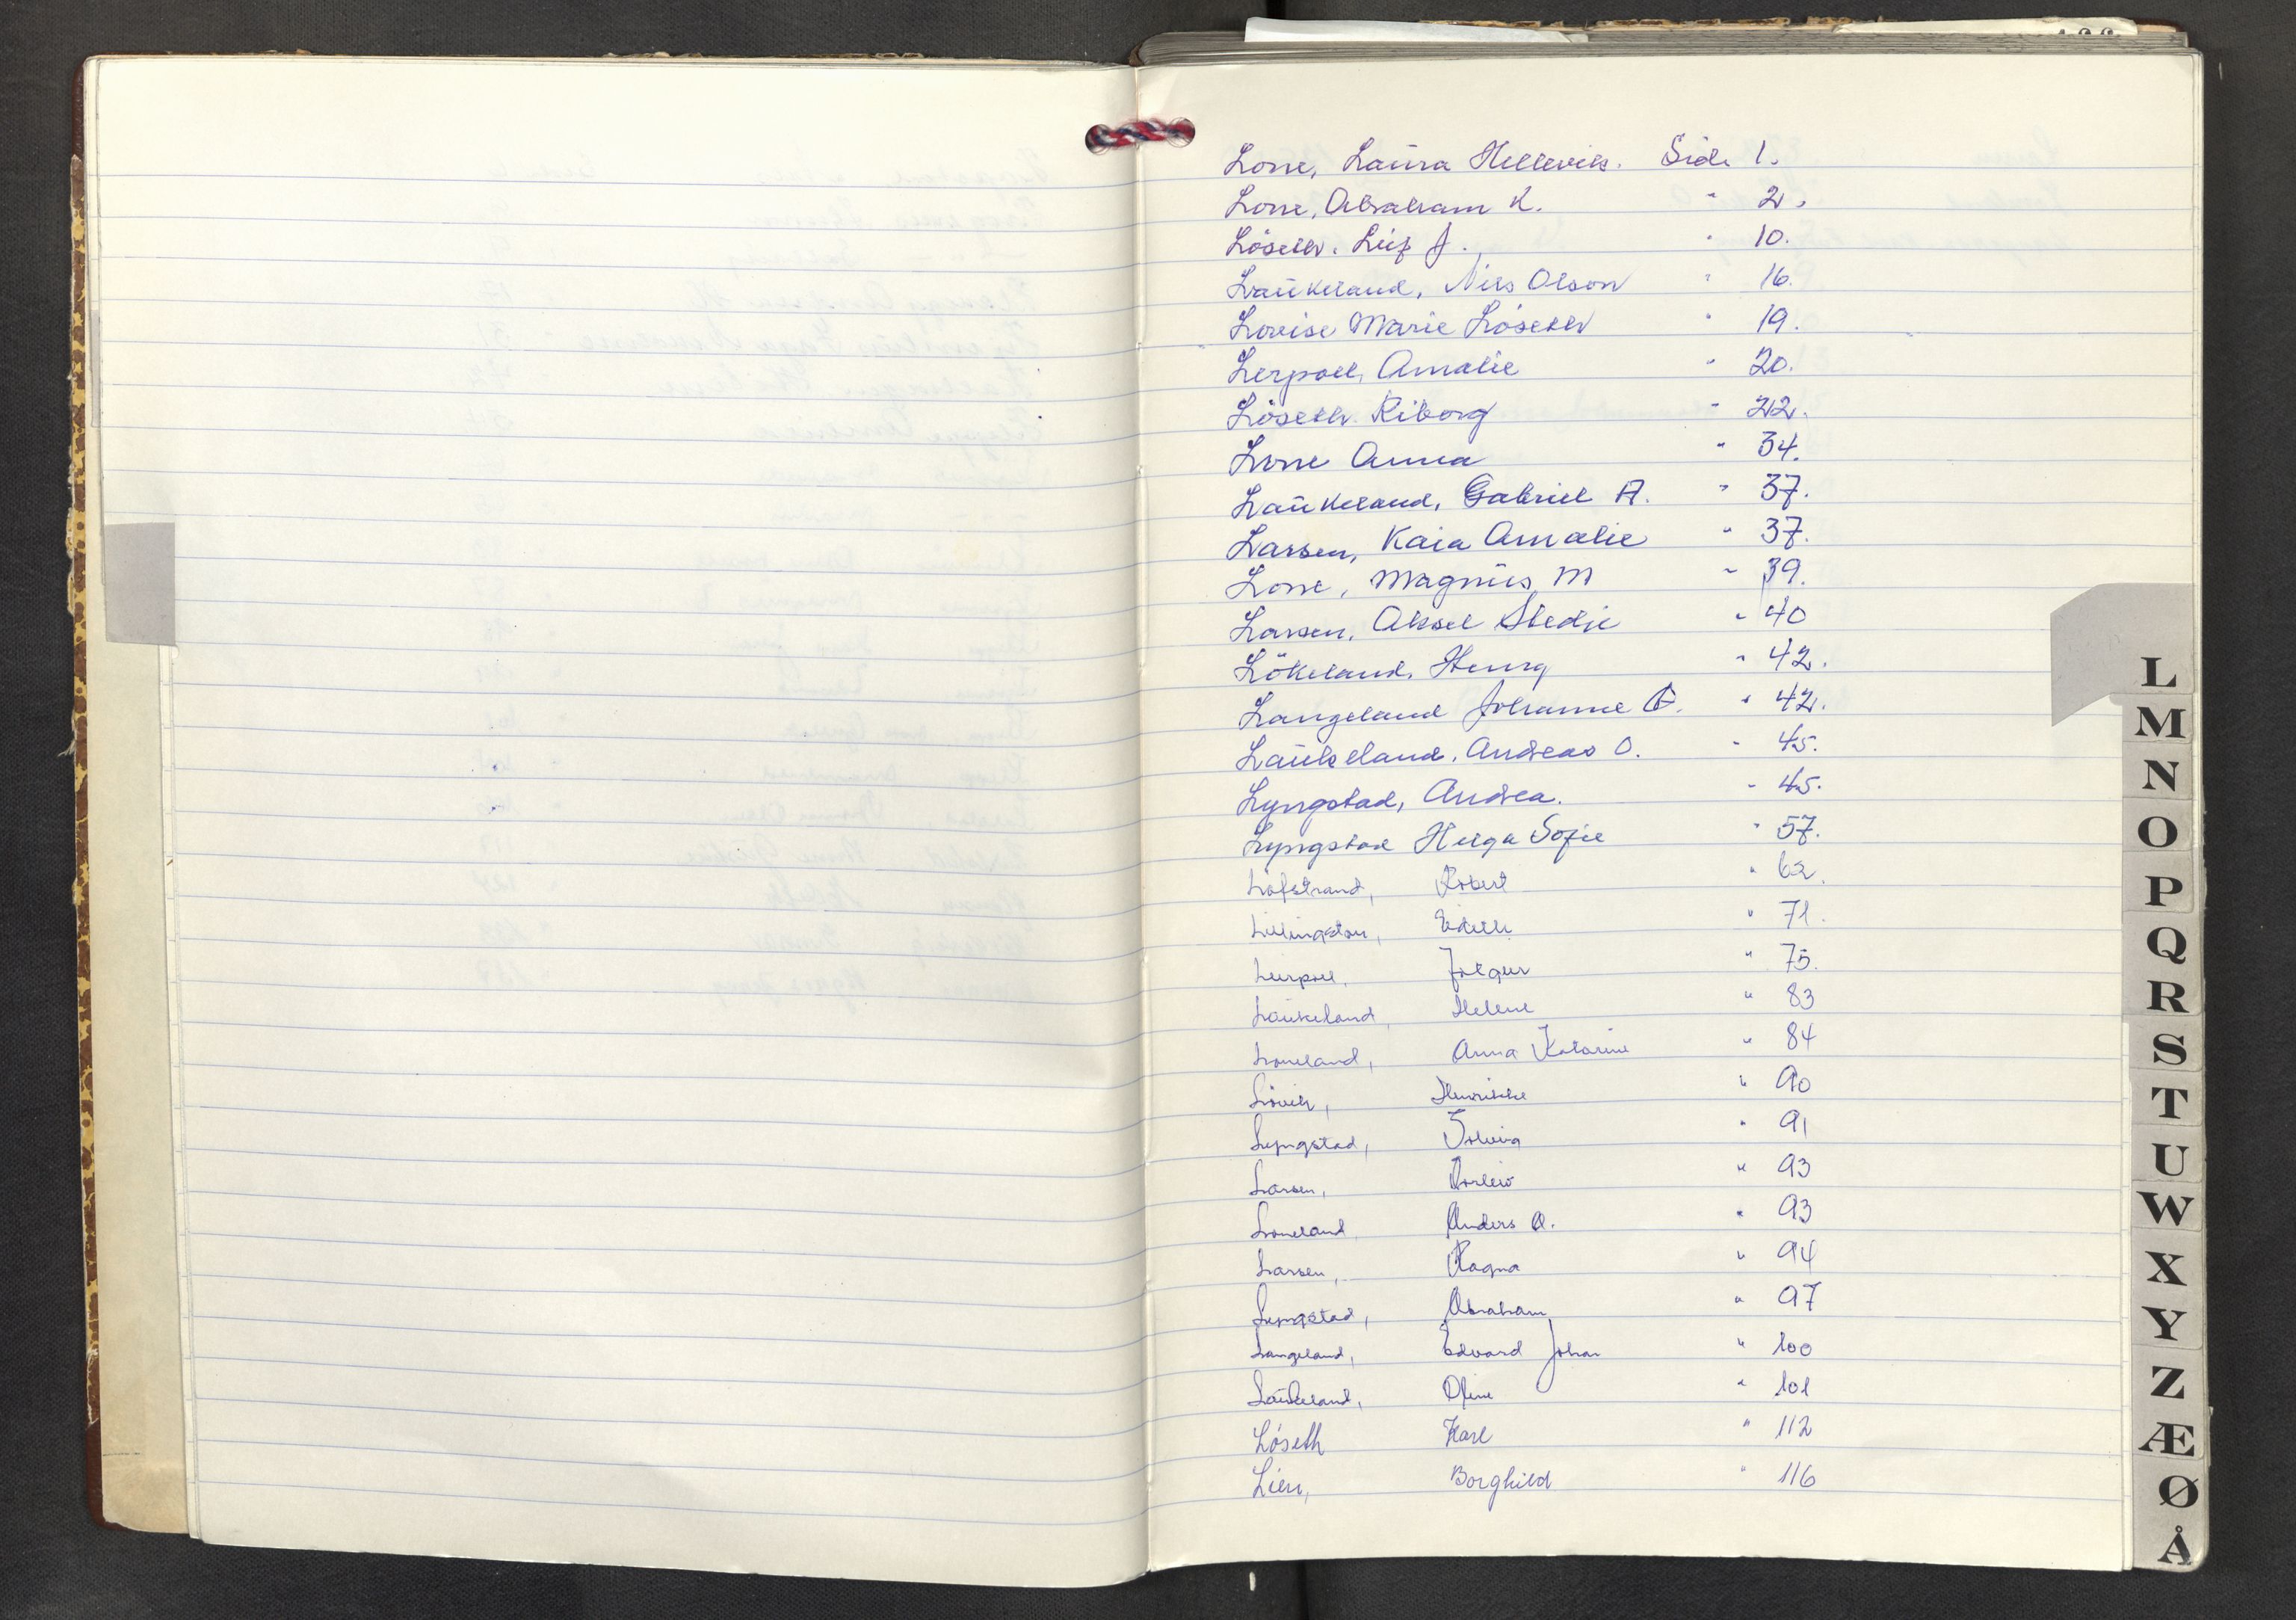 Lone, Laura Hellevik. Side 1.
Lone, Abraham K. " 2.
Løseth. Leif J. " 10.
Laukeland, Nils Olson " 16.
Lovise Marie Løseth " 19.
Leirpoll, Amalie " 20.
Løseth Riborg " 22.
Lone Anna " 34.
Laukeland, Gabriel A. " 37.
Larsen, Kaia Amalie " 37.
Lone, Magnus M " 39.
Larsen, Aksel Stedje " 40
Lökeland, Henry " 42.
Langeland Johanne " 42.
Laukeland, Andreas O. " 45.
Lyngstad, Andrea. " 45.
Lyngstad Helga Sofie " 57.
Löfstrand, Robert " 62.
Lillingston, Edith " 71.
Leirpoll, " 75.
Laukeland, Helene " 83
Loneland, Anna Katarine " 84
Lövik, Henrikke " 90
Lyngstad, Solveig " 91
Larsen, Torleiv " 93
Loneland Anders A. " 93
Larsen, Ragna " 94
Lyngstad, Abraham " 97
Langeland, Edvard Johan " 100
Laukeland, Oline " 101
Løseth Karl " 112
Lien, Borghild " 116
L
M
N
O
P
Q
R
S
T
U
W
X
Y
Z
Æ
Ø
Å